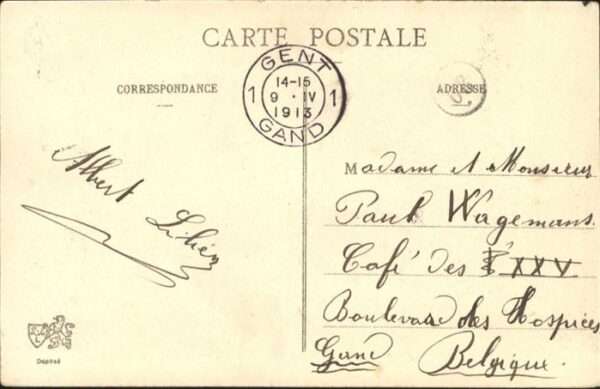 CARTE POSTALE
CORRESPONDANCE
ADRESSE
GENT
14-15
1 9 · IV 1
1913
GAND
Albert
Madame et Monsieur
Paul Wagemans
Café des XXV
Boulevard des Hospices
Gand Belgique.
Déposé